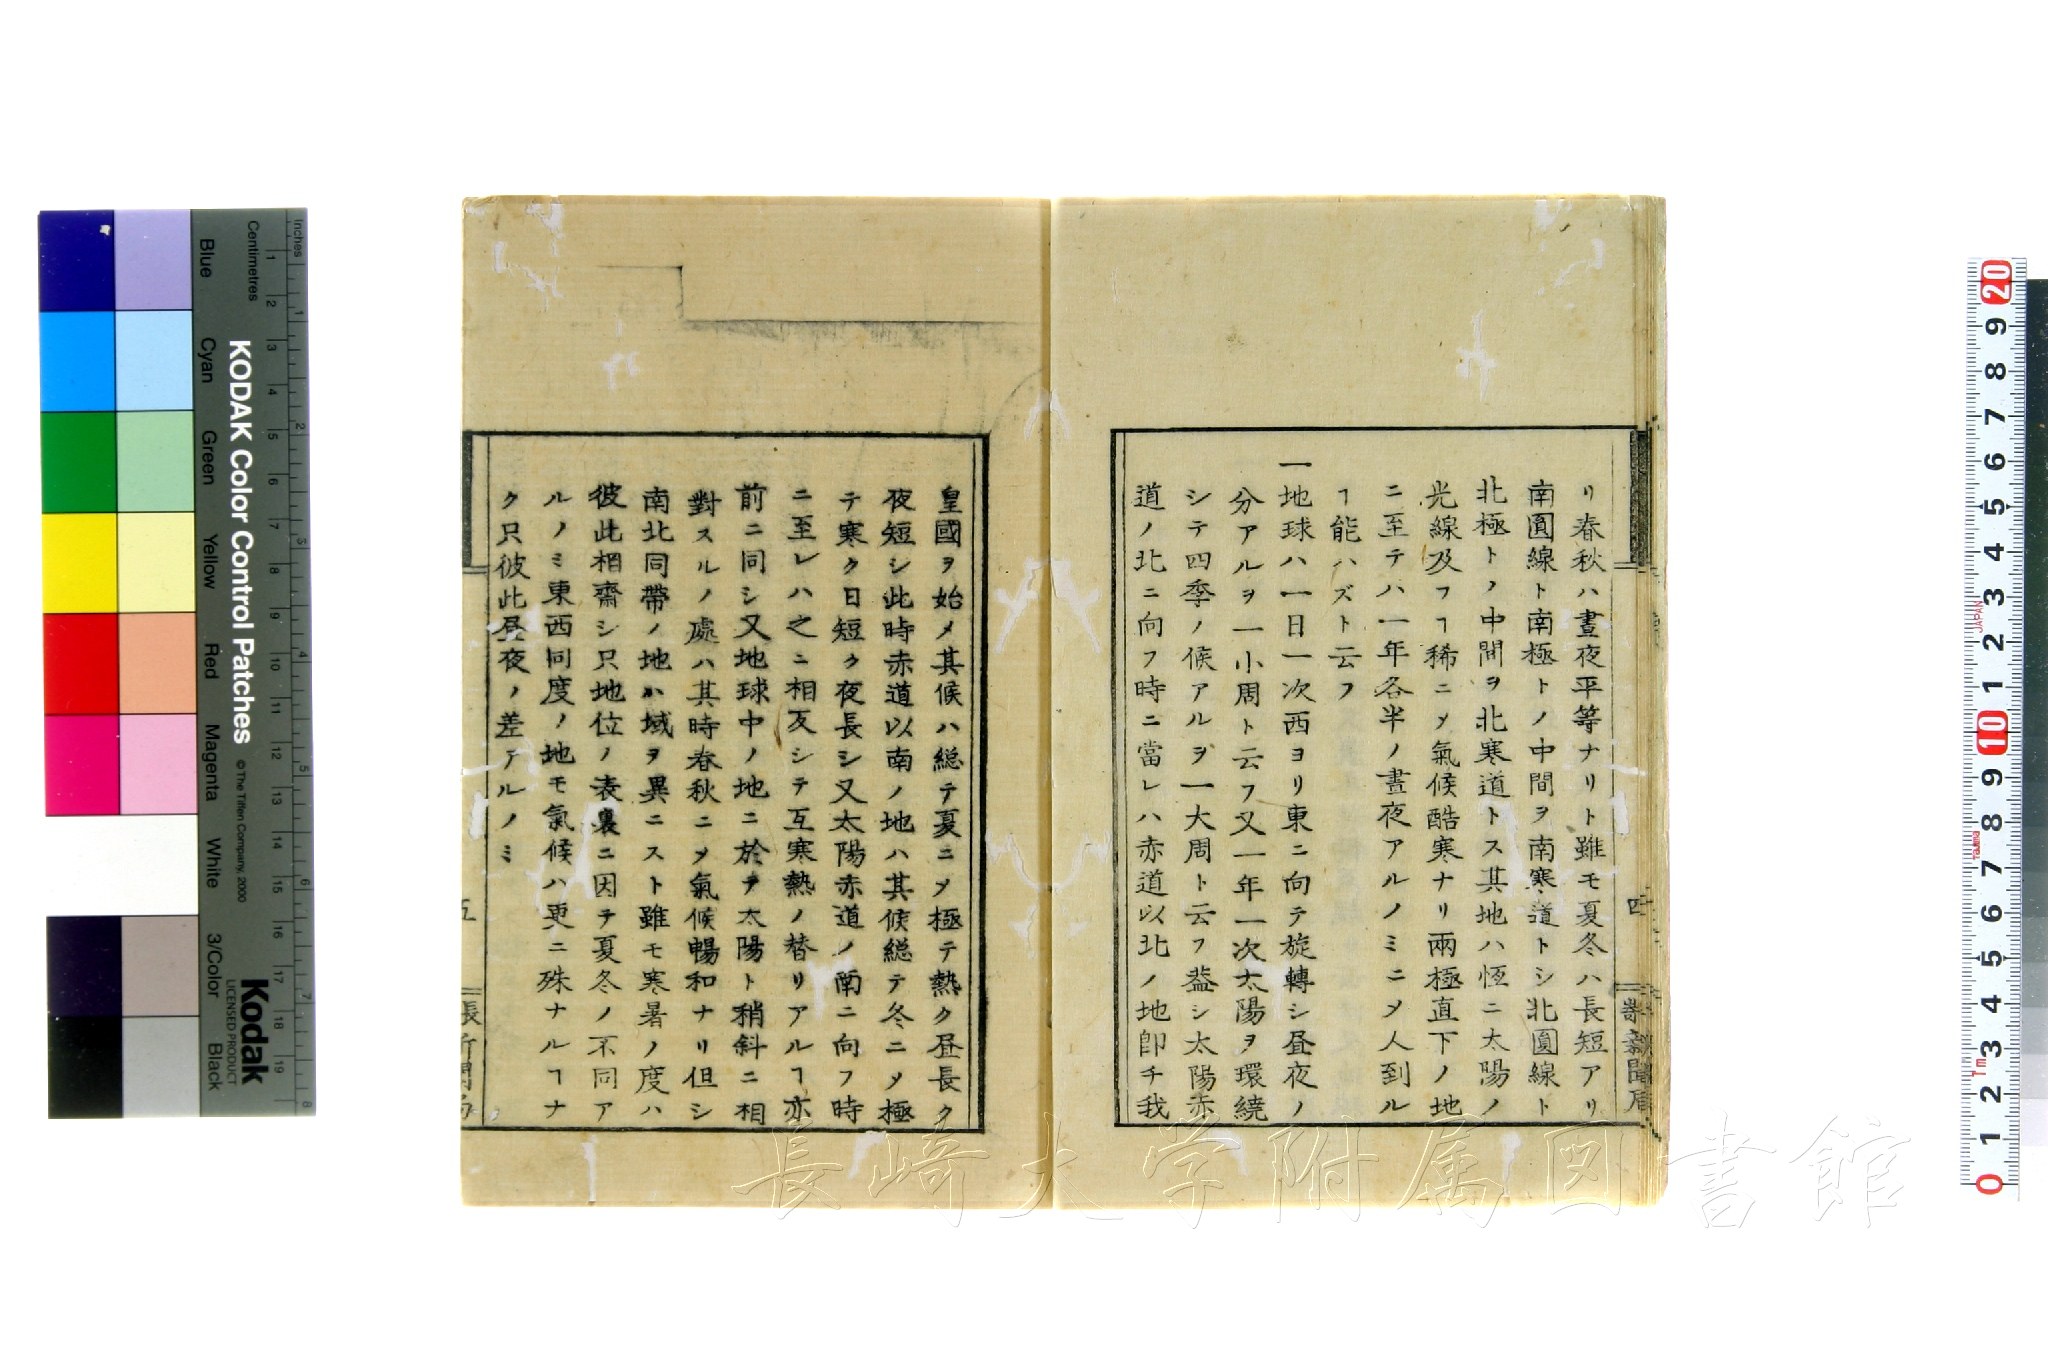 リ春秋ハ晝夜平等ナリト雖モ夏冬ハ長短アリ
南圓線ト南極トノ中間ヲ南寒道トシ北圓線ト
北極トノ中間ヲ北寒道トス其地ハ恆ニ太陽ノ
光線及フヿ稀ニメ氣候酷寒ナリ兩極直下ノ地
ニ至テハ一年各半ノ晝夜アルノミニメ人到ル
ヿ能ハズト云フ
一地球ハ一日一次西ヨリ東ニ向テ旋轉シ昼夜ノ
分アルヲ一小周ト云フ又一年一次太陽ヲ環繞
シテ四季ノ候アルヲ一大周ト云フ蓋シ太陽赤
道ノ北ニ向フ時ニ當レハ赤道以北ノ地即チ我
四
皇國ヲ始メ其候ハ総テ夏ニメ極テ熱ク昼長ク
夜短シ此時赤道以南ノ地ハ其候総テ冬ニメ極
テ寒ク日短ク夜長シ又太陽赤道ノ南ニ向フ時
ニ至レハ之ニ相反シテ互寒熱ノ替リアルヿ亦
前ニ同シ又地球中ノ地ニ於テ太陽ト稍斜ニ相
對スルノ處ハ其時春秋ニメ氣候暢和ナリ但シ
南北同帶ノ地ハ域ヲ異ニスト雖モ寒暑ノ度ハ
彼此相齋シ只地位ノ表裏ニ因テ夏冬ノ不同ア
ルノミ東西同度ノ地モ氣候ハ更ニ殊ナルヿナ
ク只彼此昼夜ノ差アルノミ
五
長崎大学附属図書館
KODAK Color Control Patches
© The Tiffen Company, 2000
Kodak
LICENSED PRODUCT
Inches
Centimetres
Blue
Cyan
Green
Yellow
Red
Magenta
White
3/Color
Black
1 2 3 4 5 6 7 8 9 10 11 12 13 14 15 16 17 18 19
1 2 3 4 5 6 7 8
20 9 8 7 6 5 4 3 2 1 10 9 8 7 6 5 4 3 2 1 0
JAPAN